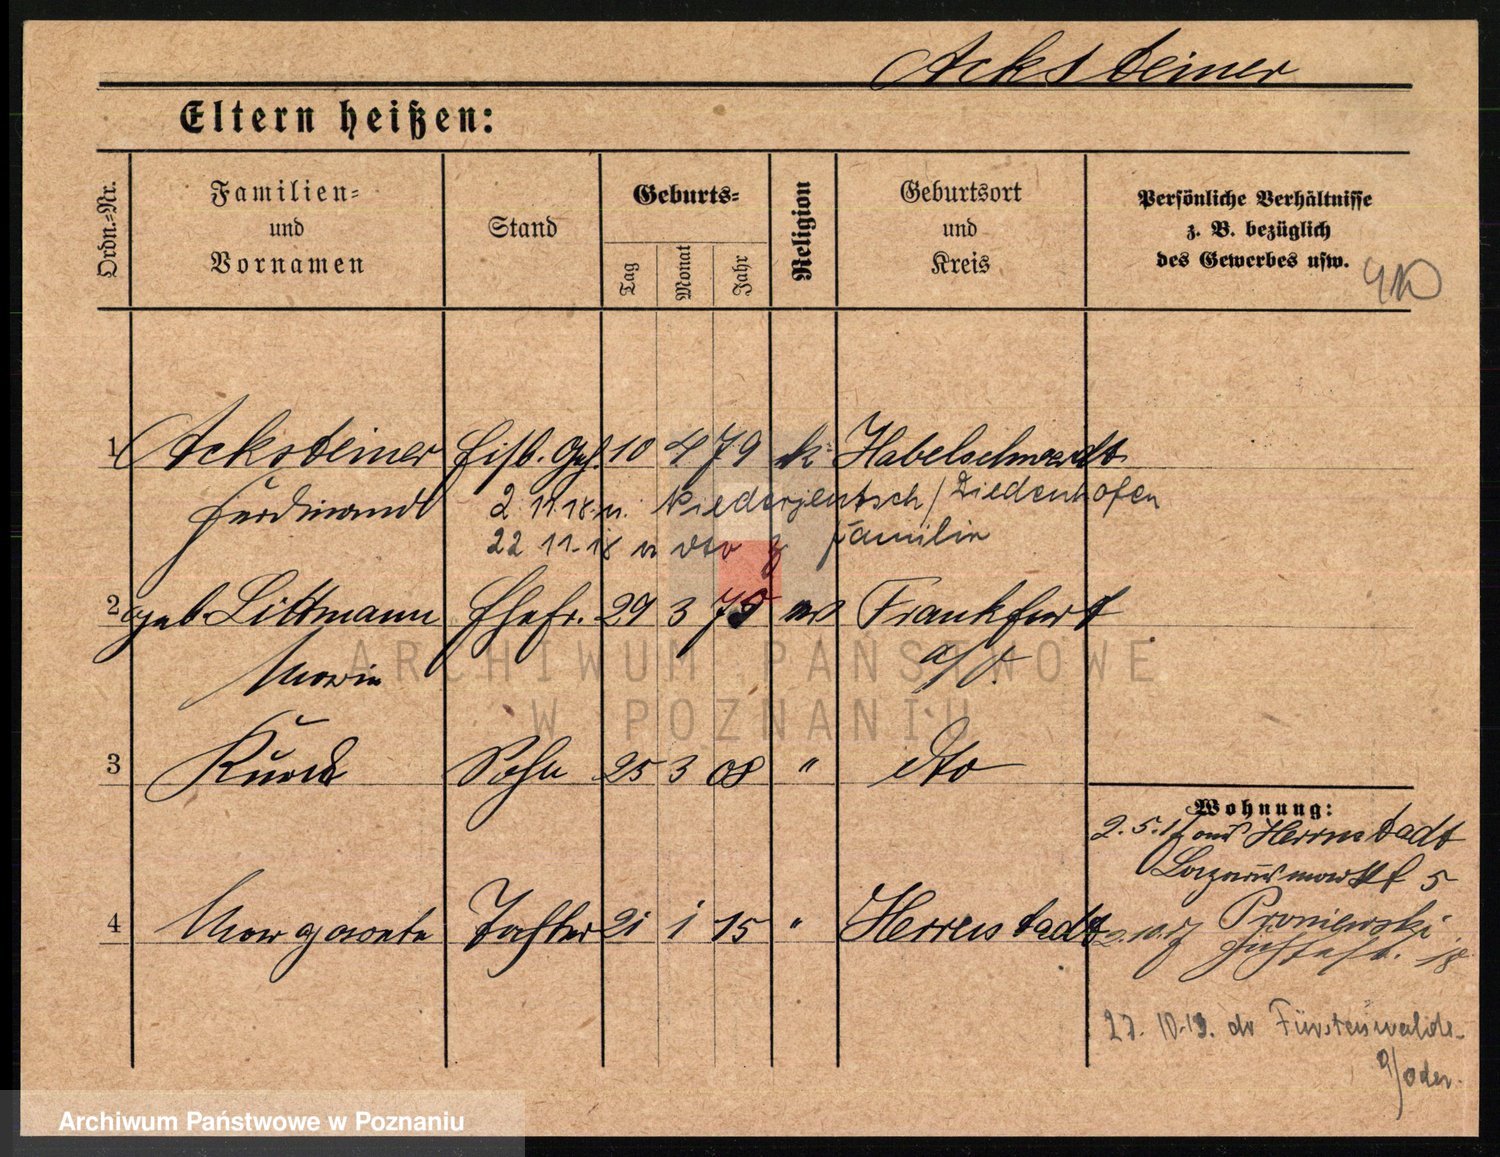 Acksteiner
Eltern heißen:
Ordn.=Nr.
Familien=
und
Vornamen
Stand
Geburts=
Tag
Monat
Jahr
Religion
Geburtsort
und
Kreis
Persönliche Verhältnisse
z. B. bezüglich
des Gewerbes usw.
1 Acksteiner Eisb. Geh. 10 4 79 k. Habelschwerdt
Ferdinand 2. 11. 18. n. Niederjeutsch / Diedenhofen
22 11. 18 v dto z Familie
2 geb. Littmann Ehefr. 29 3 Frankfurt
a/O.
3 Sohn 25 3 08 " dto
Wohnung:
2. 5. 17 aus Herrnstadt
Lazarusmarkt 5
4 Margarete Tochter 21 1 15 " Herrenstadt
Proniewski
18
10.19. Fürstenwalde
a/Oder.
ARCHIWUM PAŃSTWOWE
W POZNANIU
Archiwum Państwowe w Poznaniu